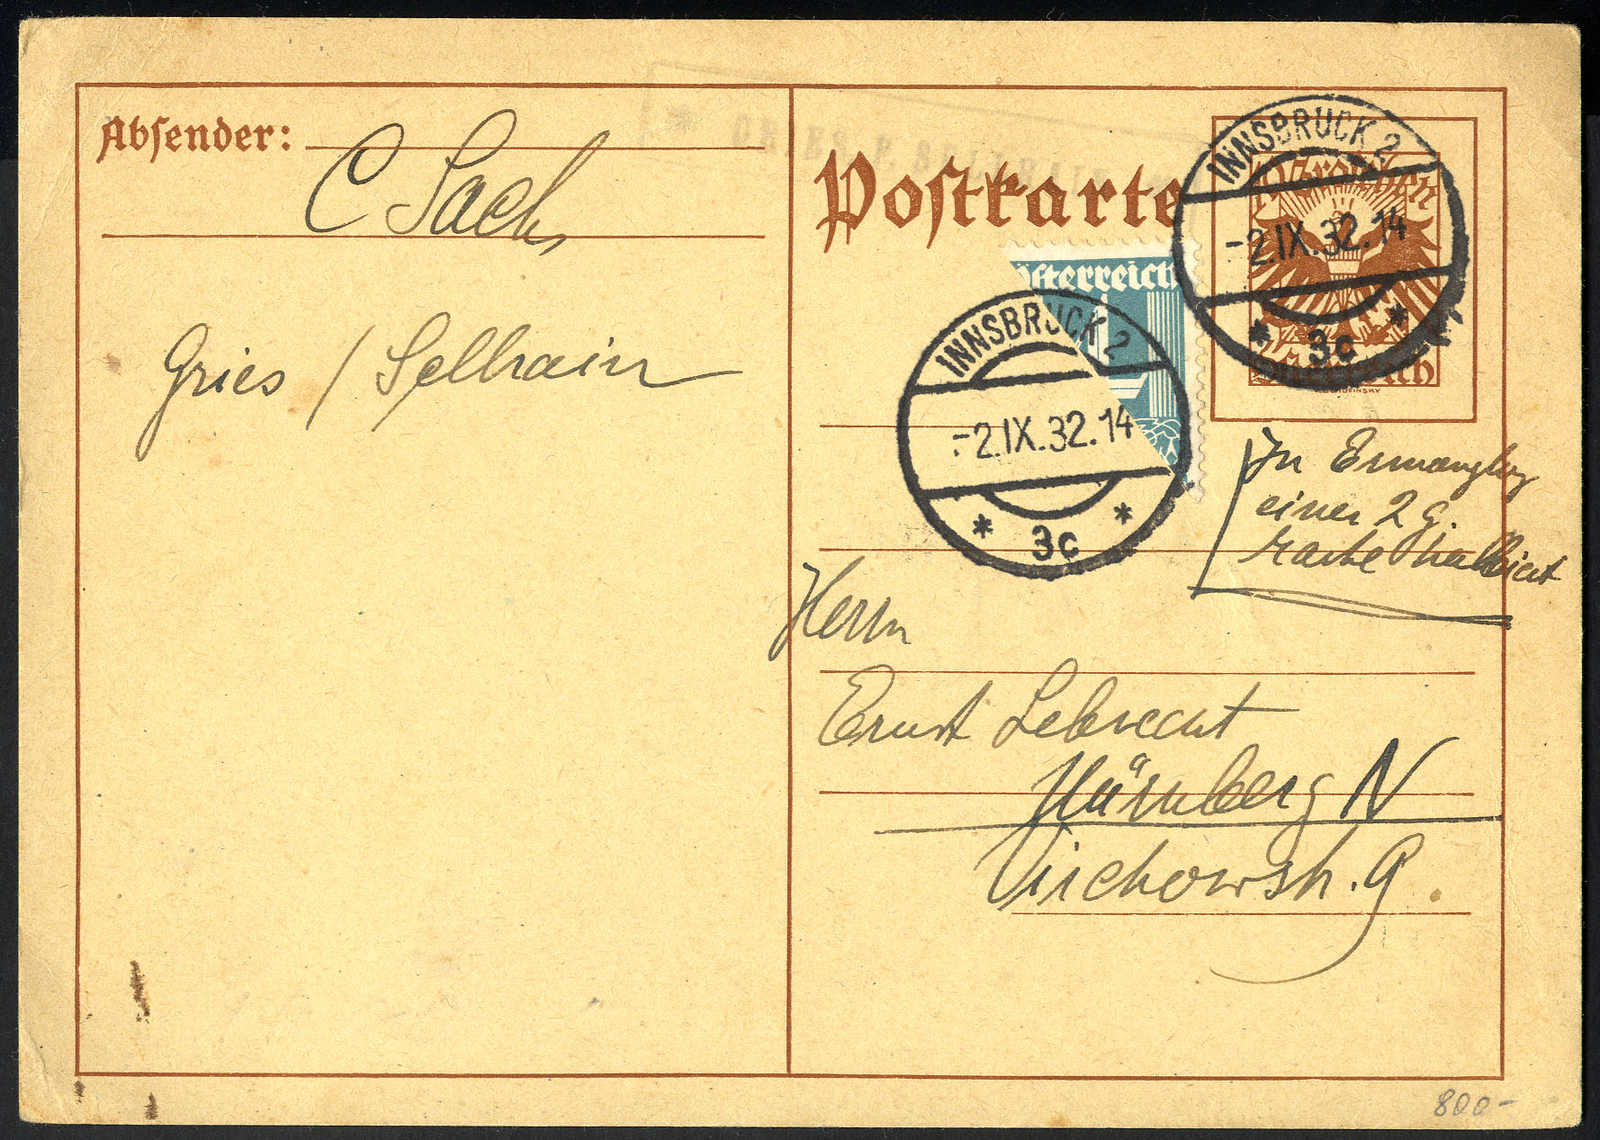 Absender:
C Sach
Gries / Sellrain
GRIES
Postkarte
Österreich
INNSBRUCK 2
-2.IX.32.14
* 3c *
INNSBRUCK 2
-2.IX.32.14
* 3c *
Groschen
Österreich
In Ermanglung
einer 2 g.
Marke halbiert
Herrn
Ernst Lebrecht
Nürnberg N
Virchowstr. 9.
800-